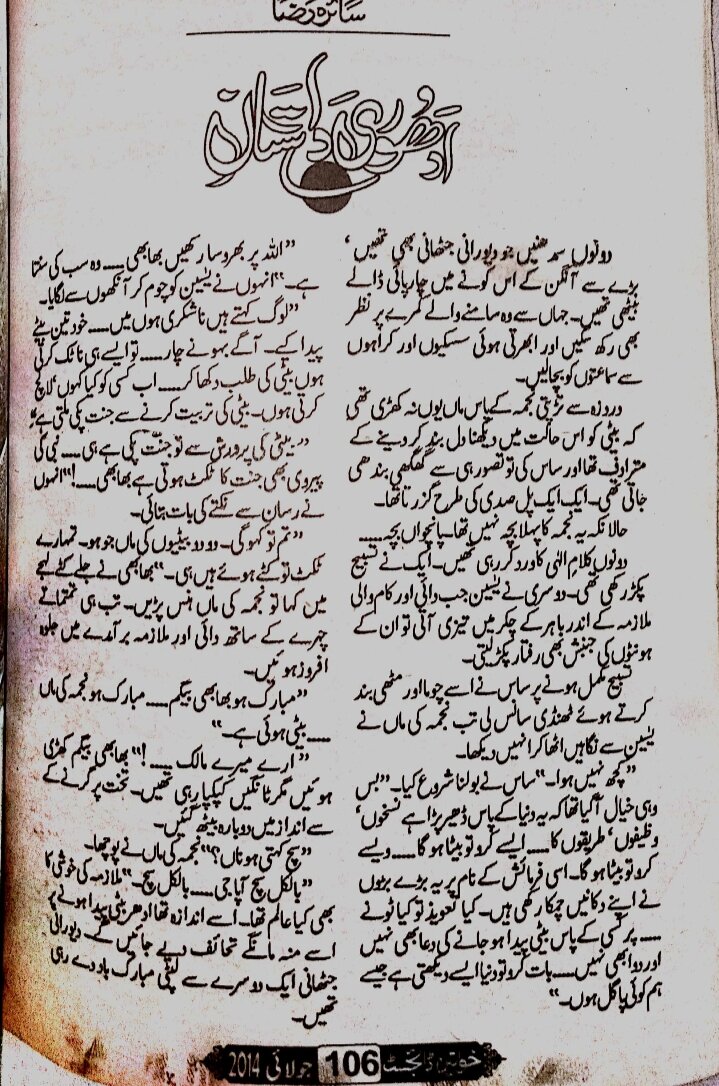 سائرہ رضا
ادھوری داستان
دونوں سمدھنیں جو دیورانی جٹھانی بھی تھیں،
بڑے سے آنگن کے اس کونے میں چارپائی ڈالے
بیٹھی تھیں۔ جہاں سے وہ سامنے والے کمرے پر نظر
بھی رکھ سکیں اور ابھرتی ہوئی سسکیوں اور کراہوں
سے سماعتوں کو بچالیں۔
دردزہ سے تڑپتی نجمہ کے پاس ماں یوں نہ کھڑی تھی
کہ بیٹی کو اس حالت میں دیکھنا دل بند کر دینے کے
مترادف تھا اور ساس کی تو تصور ہی سے گھگھی بندھی
جاتی تھی۔ ایک ایک پل صدی کی طرح گزرتا تھا۔
حالانکہ یہ نجمہ کا پہلا بچہ نہیں تھا۔ پانچواں بچہ .....
دونوں کلام الٰہی کا ورد کر رہی تھیں۔ ایک نے تسبیح
پکڑ رکھی تھی۔ دوسری نے یٰسین جب دائی اور کام والی
ملازمہ کے اندر باہر کے چکر میں تیزی آتی تو ان کے
ہونٹوں کی جنبش بھی رفتار پکڑ لیتی۔
تسبیح مکمل ہونے پر ساس نے اسے چوما اور مٹھی بند
کرتے ہوئے ٹھنڈی سانس لی تب نجمہ کی ماں نے
یٰسین سے نگاہیں اٹھا کر انہیں دیکھا۔
”کچھ نہیں ہوا۔“ ساس نے بولنا شروع کیا۔ ”بس
وہی خیال آگیا تھا کہ یہ دنیا کے پاس ڈھیر پڑا ہے نسخوں،
وظیفوں، طریقوں کا..... ایسے کرو تو بیٹا ہو گا ..... ویسے
کرو تو بیٹا ہو گا۔ اسی فرمائش کے نام پر یہ بڑے بڑوں
نے اپنے دکانیں چمکا رکھی ہیں۔ کیا تعویذ تو کیا ٹونے
..... پر کسی کے پاس بیٹی پیدا ہو جانے کی دعا بھی نہیں
اور دوا بھی نہیں ..... بات کرو تو دنیا ایسے دیکھتی ہے جیسے
ہم کوئی پاگل ہوں۔“
”اللہ پر بھروسا رکھیں بھابھی ..... وہ سب کی سنتا
ہے۔“ انہوں نے یٰسین کو چوم کر آنکھوں سے لگایا۔
”لوگ کہتے ہیں ناشکری ہوں میں ..... خود تین بیٹے
پیدا کیے۔ آگے بہو نے چار ..... تو ایسے ہی ناٹک کرتی
ہوں بیٹی کی طلب دکھا کر ..... اب کسی کو کیا کہوں، لالچ
کرتی ہوں۔ بیٹی کی تربیت کرنے سے جنت پکی ملتی ہے“
”بیٹی کی پرورش سے تو جنت پکی ہے ہی ..... نبی کی
پیروی بھی جنت کا ٹکٹ ہوتی ہے بھابھی .....!“ انہوں
نے رسان سے نکتے کی بات بتائی۔
”تم تو کہو گی۔ دو دو بیٹیوں کی ماں جو ہو۔ تمہارے
ٹکٹ تو کٹے ہوئے ہیں ہی۔“ بھابھی نے جلے کٹے لہجے
میں کہا تو نجمہ کی ماں ہنس پڑیں۔ تب ہی تمتماتے
چہرے کے ساتھ دائی اور ملازمہ برآمدے میں جلوہ
افروز ہوئیں۔
”مبارک ہو بھابھی بیگم ..... مبارک ہو نجمہ کی ماں
..... بیٹی ہوئی ہے۔“
”ارے میرے مالک .....!“ بھابھی بیگم کھڑی
ہوئیں مگر ٹانگیں کپکپا رہی تھیں۔ تخت پر گرنے کے
سے انداز میں دوبارہ بیٹھ گئیں۔
”سچ کہتی ہو ناں؟“ نجمہ کی ماں نے پوچھا۔
”بالکل سچ آپا جی ..... بالکل سچ۔“ ملازمہ کی خوشی کا
بھی کیا عالم تھا۔ اسے اندازہ تھا ادھر بیٹی پیدا ہونے پر
اسے منہ مانگے تحائف دیے جائیں گے۔ دیورانی
جٹھانی ایک دوسرے سے لپٹی مبارک باد دے رہی
تھیں۔
خواتین ڈائجسٹ 106 جولائی 2014